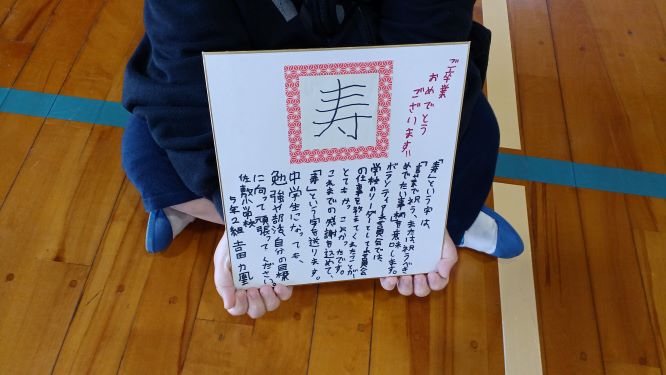 卒業
おめでとう
ございます!!
寿
「寿」という字は、
「言葉で祝う、または祝うべき
めでたい事柄」を意味します。
ボランティア委員会では、
学校のリーダーとして委員会
の仕事を教えてくれたことが
とてもかっこよかったです。
これまでの感謝を込めて、
「寿」という字を送ります。
中学生になっても、
勉強や部活、自分の目標
に向って頑張ってください。
佐敷小学校
5年2組 吉田